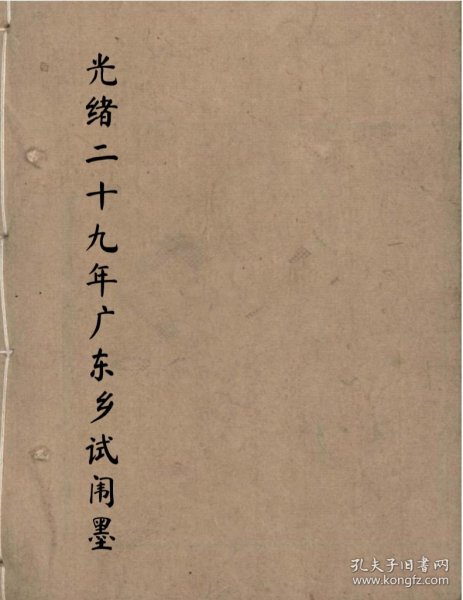 光绪二十九年广东乡试闱墨
孔夫子旧书网
www.kongfz.com